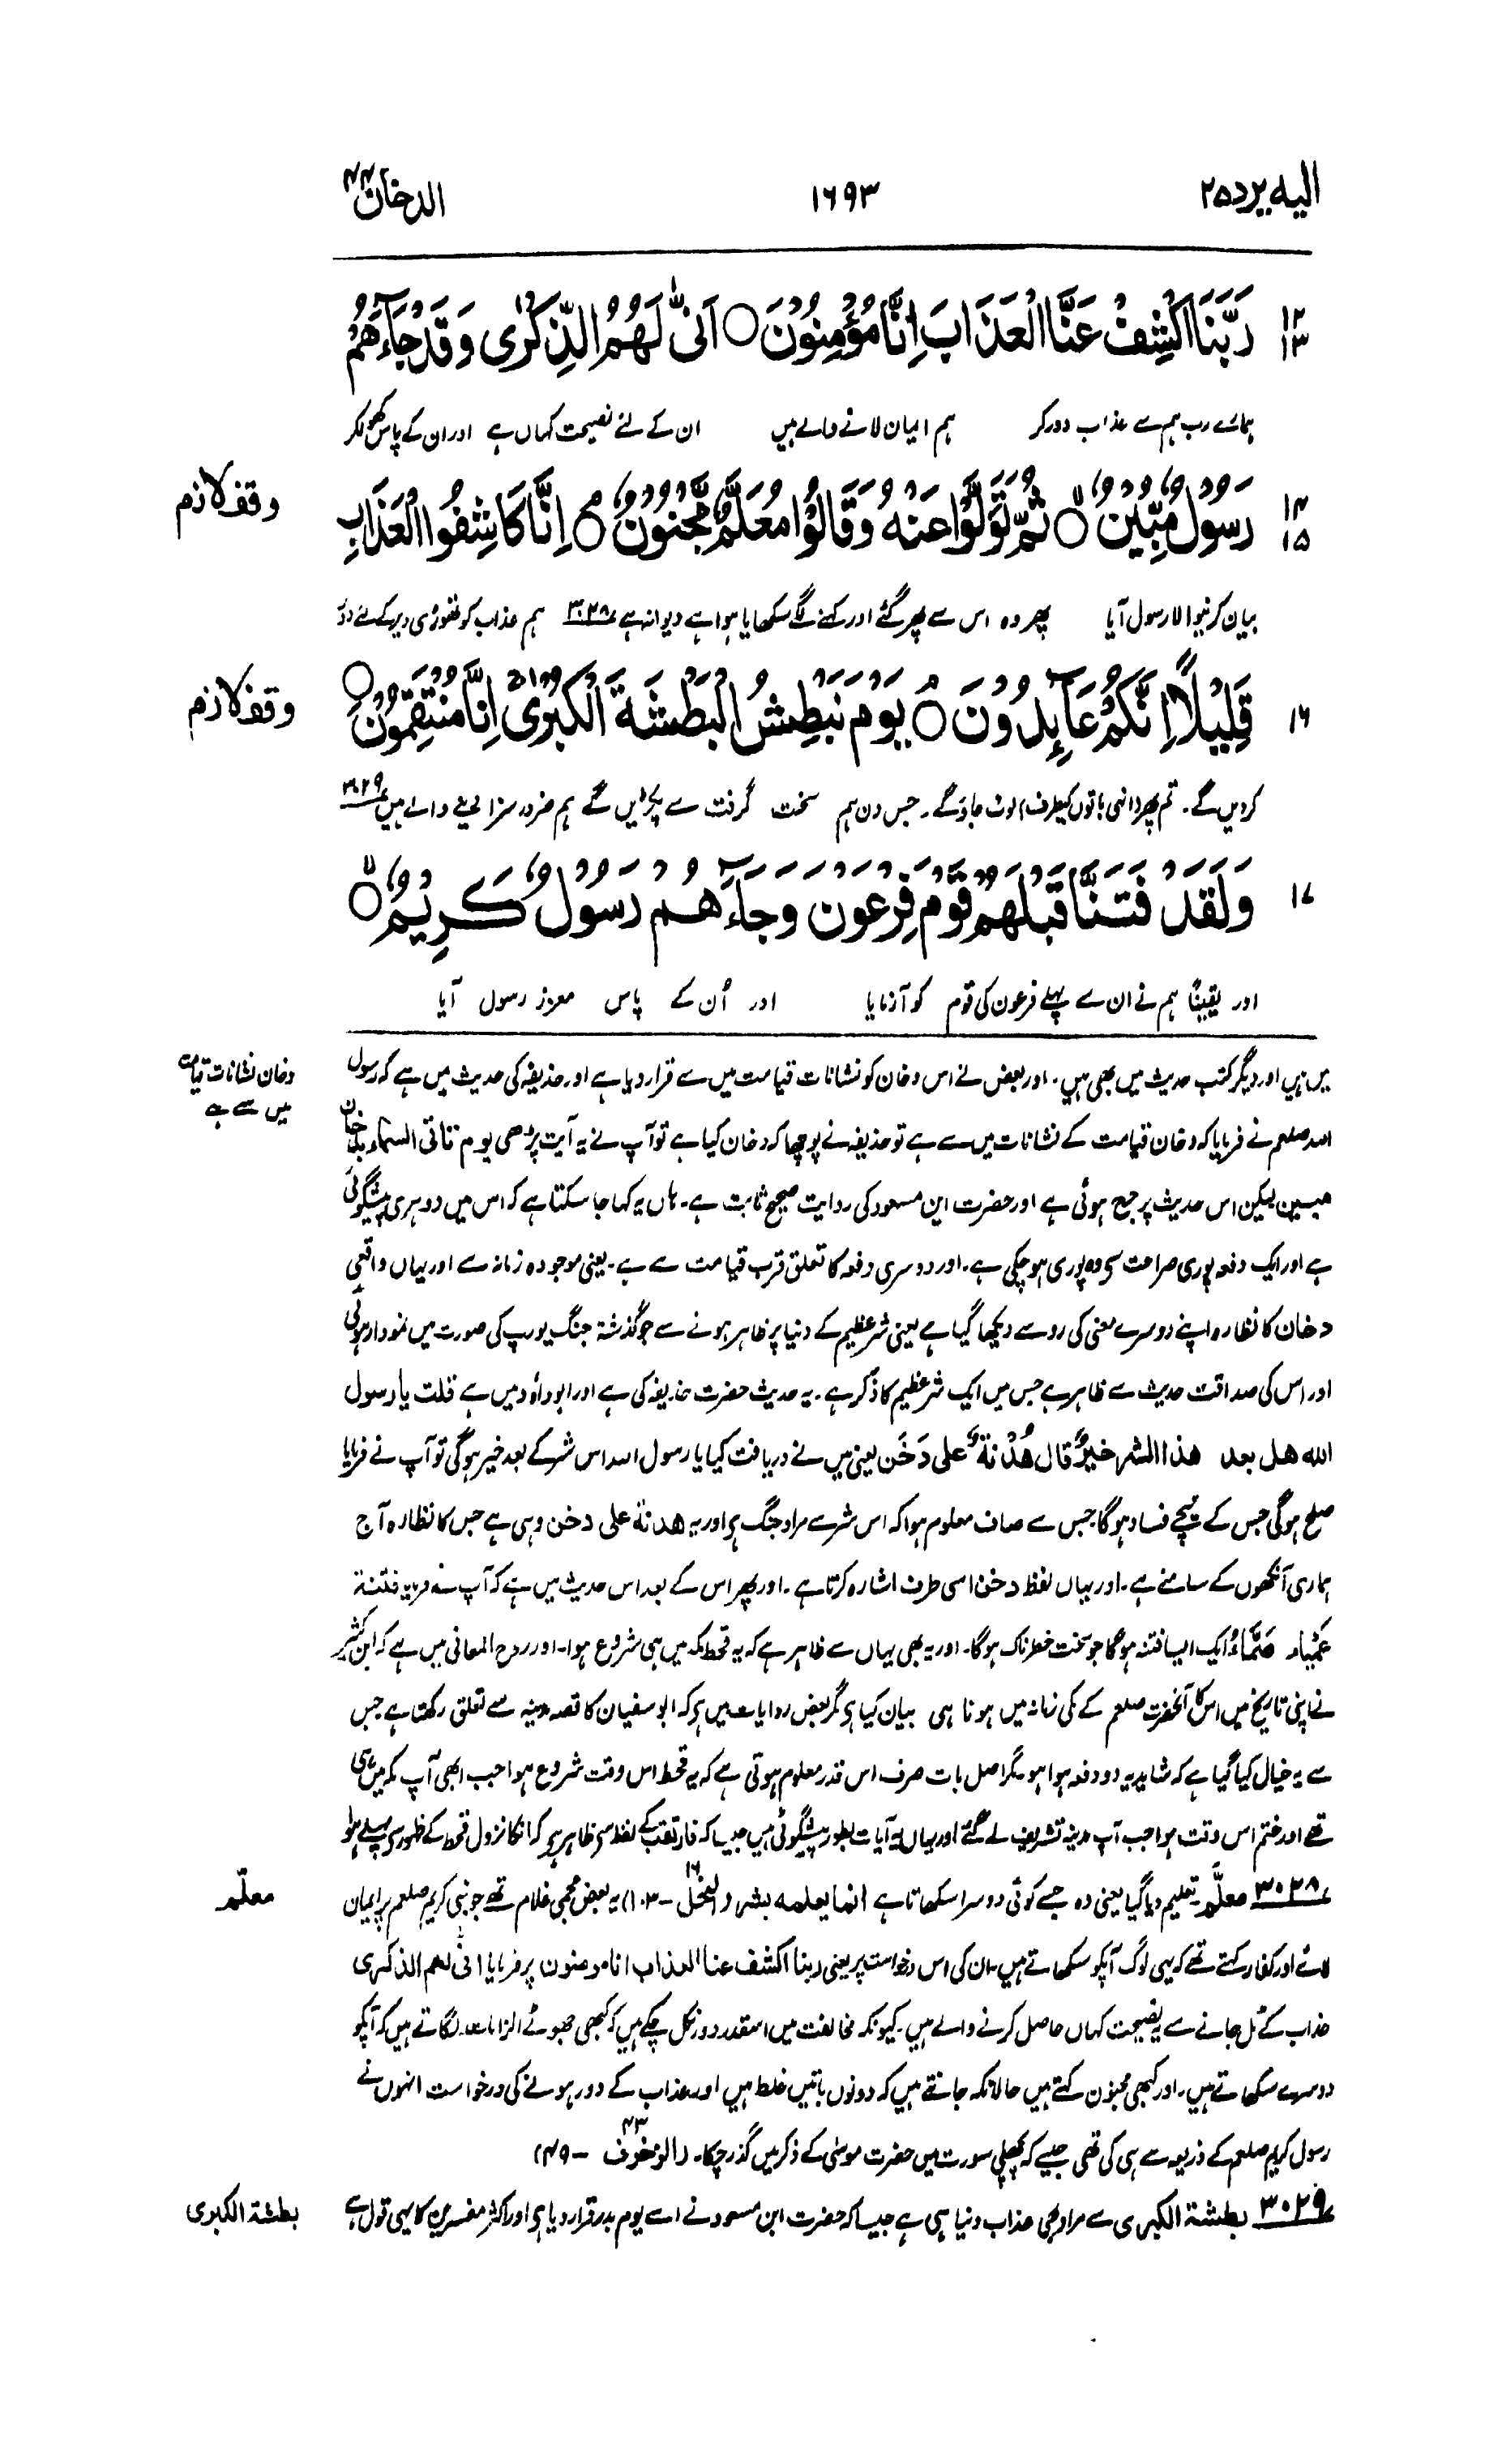 الیه یرد ۲۵
۱۶۹۳
الدخان ۴۴
۱۲
۱۳
رَبَّنَا اكْشِفْ عَنَّا الْعَذَابَ اِنَّا مُؤْمِنُوْنَ ○ اَنّٰى لَهُمُ الذِّكْرٰى وَقَدْ جَآءَهُمْ
ہمارے رب ہم سے عذاب دور کر ہم ایمان لانے والے ہیں ان کے لئے نصیحت کہاں ہے اور ان کے پاس کھولکر
۱۴
۱۵
رَسُوْلٌ مُّبِيْنٌ ○ ثُمَّ تَوَلَّوْا عَنْهُ وَقَالُوْا مُعَلَّمٌ مَّجْنُوْنٌ ○ م اِنَّا كَاشِفُوا الْعَذَابِ
وقف لازم
بیان کرنیوالا رسول آیا پھر وہ اس سے پھر گئے اور کہنے لگے سکھایا ہوا ہے دیوانہ ہے ۳۰۲۸ ہم عذاب کو تھوڑی دیر کے لئے دور
۱۶
قَلِيْلًا اِنَّكُمْ عَآئِدُوْنَ ○ م يَوْمَ نَبْطِشُ الْبَطْشَةَ الْكُبْرٰى ج اِنَّا مُنْتَقِمُوْنَ ○
وقف لازم
کردیں گے۔ تم پھر (انہی باتوں کیطرف) لوٹ جاؤ گے۔ جس دن ہم سخت گرفت سے پکڑیں گے ہم ضرور سزا دینے والے ہیں ۳۰۲۹
۱۷
وَلَقَدْ فَتَنَّا قَبْلَهُمْ قَوْمَ فِرْعَوْنَ وَجَآءَهُمْ رَسُوْلٌ كَرِيْمٌ ○
اور یقیناً ہم نے ان سے پہلے فرعون کی قوم کو آزمایا اور اُن کے پاس معزز رسول آیا
دخان نشانات قیامت
میں سے ہے
میں ہیں اور دیگر کتب حدیث میں بھی ہیں۔ اور بعض نے اس دخان کو نشانات قیامت میں سے قرار دیا ہے اور حذیفہ کی حدیث میں ہے کہ رسول
اللہ صلعم نے فرمایا کہ دخان قیامت کے نشانات میں سے ہے تو حذیفہ نے پوچھا کہ دخان کیا ہے تو آپ نے یہ آیت پڑھی یوم تاتی السماء بدخان
مبین لیکن اس حدیث پر جرح ہوئی ہے اور حضرت ابن مسعود کی روایت صحیح ثابت ہے۔ ہاں یہ کہا جا سکتا ہے کہ اس میں دوہری پیشگوئی
ہے اور ایک دفعہ پوری صراحت سے وہ پوری ہو چکی ہے۔ اور دوسری دفعہ کا تعلق قرب قیامت سے ہے۔ یعنی موجودہ زمانہ سے اور یہاں واقعی
دخان کا نظارہ اپنے دوسرے معنی کی رو سے دیکھا گیا ہے یعنی شر عظیم کے دنیا پر ظاہر ہونے سے جو گذشتہ جنگ یورپ کی صورت میں نمودار ہوئی
اور اس کی صداقت حدیث سے ظاہر ہے جس میں ایک شر عظیم کا ذکر ہے۔ یہ حدیث حضرت حذیفہ کی ہے اور ابوداؤد میں ہے قلت یا رسول
الله هل بعد هذا الشر خیرٌ قال هُدْنَةٌ علی دَخَن یعنی میں نے دریافت کیا یا رسول اللہ اس شر کے بعد خیر ہوگی تو آپ نے فرمایا
صلح ہوگی جس کے نیچے فساد ہوگا جس سے صاف معلوم ہوا کہ اس شر سے مراد جنگ ہے اور یہ هدنة علی دخن وہی ہے جس کا نظارہ آج
ہماری آنکھوں کے سامنے ہے۔ اور یہاں لفظ دخن اسی طرف اشارہ کرتا ہے۔ اور پھر اس کے بعد اس حدیث میں ہے کہ آپ نے فرمایا فتنة
عَمْیاء صَمَّاءُ ایک ایسا فتنہ ہوگا جو سخت خطرناک ہوگا۔ اور یہ بھی یہاں سے ظاہر ہے کہ یہ قحط مکہ میں ہی شروع ہوا۔ اور روح المعانی میں ہے کہ ابن کثیر
نے اپنی تاریخ میں اس کا آنحضرت صلعم کے مکی زمانہ میں ہونا ہی بیان کیا ہے مگر بعض روایات میں ہے کہ ابو سفیان کا قصہ مدینہ سے تعلق رکھتا ہے جس
سے یہ خیال کیا گیا ہے کہ شاید یہ دو دفعہ ہوا ہو۔ مگر اصل بات صرف اس قدر معلوم ہوتی ہے کہ یہ قحط اس وقت شروع ہوا جب ابھی آپ مکہ میں ہی
تھے اور ختم اس وقت ہوا جب آپ مدینہ تشریف لے گئے اور یہاں یہ آیات بطور پیشگوئی ہیں جیسا کہ فارتقب کے لفظ سے ظاہر ہے کہ انکا نزول قحط کے ظہور سے پہلے ہوا
معلّم
۳۰۲۸ معلَّم۔ تعلیم دیا گیا یعنی وہ جسے کوئی دوسرا سکھاتا ہے انما یعلمه بشر (النحل ۱۶ – ۱۰۳) یہ بعض عجمی غلام تھے جو نبی کریم صلعم پر ایمان
لائے اور کفار کہتے تھے کہ یہی لوگ آپکو سکھاتے ہیں۔ ان کی اس درخواست پر یعنی ربنا اکشف عنا العذاب انا مومنون پر فرمایا انی لهم الذکری
عذاب کے ٹل جانے سے یہ نصیحت کہاں حاصل کرنے والے ہیں۔ کیونکہ مخالفت میں اسقدر دور نکل چکے ہیں کہ کبھی جھوٹے الزامات لگاتے ہیں کہ آپکو
دوسرے سکھاتے ہیں۔ اور کبھی مجنون کہتے ہیں حالانکہ جانتے ہیں کہ دونوں باتیں غلط ہیں اور عذاب کے دور ہونے کی درخواست انہوں نے
رسول کریم صلعم کے ذریعہ سے ہی کی تھی جیسے کہ پچھلی سورت میں حضرت موسٰی کے ذکر میں گذر چکا۔ (الزخرف ۴۳ – ۴۹)
بطشة الکبری
۳۰۲۹ بطشة الکبری سے مراد بھی عذاب دنیا ہی ہے جیسا کہ حضرت ابن مسعود نے اسے یوم بدر قرار دیا ہے اور اکثر مفسرین کا یہی قول ہے